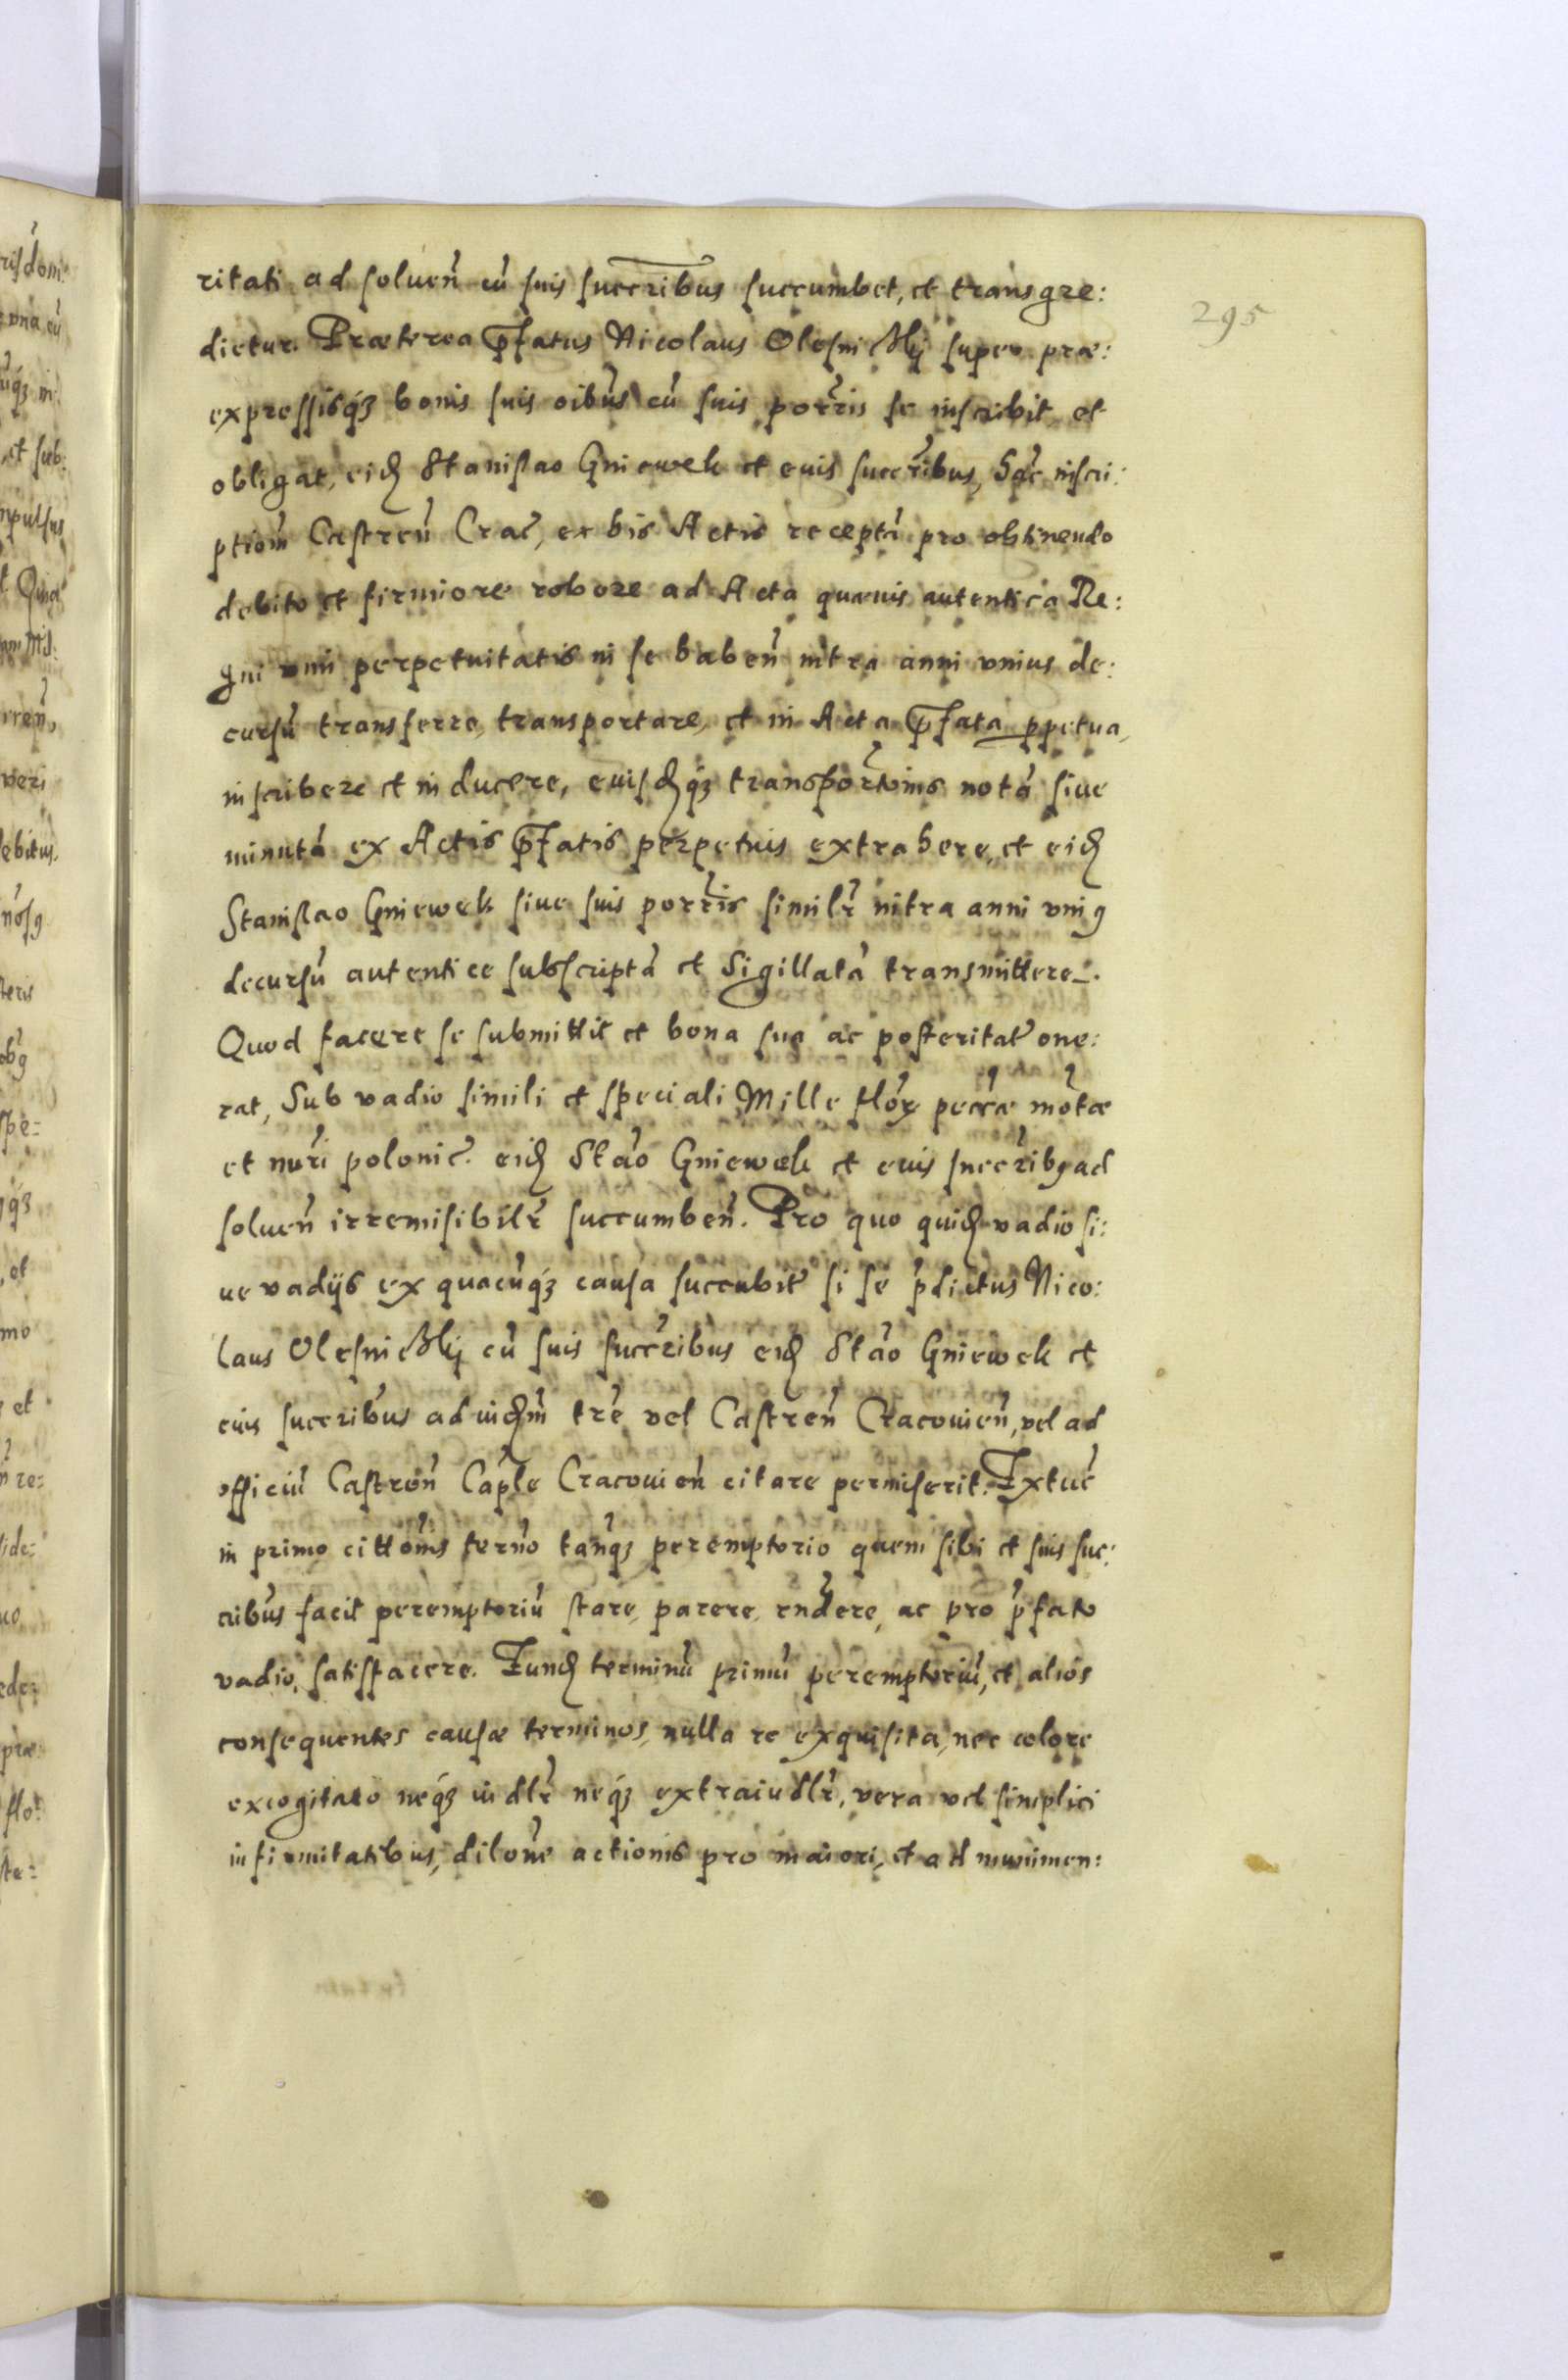 295
ritati ad soluen̄ cū suis succribus succumbet, et transgre:
dietur. Præterea p̄fatus Nicolaus Olesniczkij super præ:
expressisq́ꝫ bonis suis oībus cū suis porr̄is se inscribit et
obligat, eid̄ Stanislao Gniewek et euis succr̄ibus, hāc inscri:
ptiom̄ Castren̄ Crac̄, ex his Actis receptā pro obtinendo
debito et firmiore robore ad Acta quævis autentica Re:
gni vim perpetuitatis in se haben̄ intra anni vnius de:
cursū transferre, transportare, et in Acta p̄fata ppetua,
inscribere et inducere, euisd̄q́ꝫ transportōnis notā siue
minutā ex Actis p̄fatis perpetuis extrahere, et eid̄
Stanislao Gniewek siue suis porr̄is similr̄ intra anni vniꝰ
decursū autentice subscriptā et Sigillatā transmittere.
Quod facere se submittit et bona sua ac posteritat̄ one:
rat, Sub vadio simili et speciali Mille flor̄ pecc̄æ mōtæ
et nur̄i polonic̄. eid̄ Stāo Gniewek et euis succr̄ibꝰ ad
soluen̄ irremisibilr̄ succumben̄. Pro quo quid̄ vadio si:
ue vadijs ex quacūq́ꝫ causa succubit̄ si se p̄dictus Nico:
laus Olesniczkij cū suis succr̄ibus eid̄ Stāo Gniewek et
euis succribus ad iud̄m̄ trē vel Castren̄ Cracouien̄, vel ad
officiū Castren̄ Cap̄le Cracouien̄ citare permiserit. Extūc
in primo cittōnis tern̄o tanq̄ꝫ peremptorio quem sibi et suis suc:
cribus facit peremptoriū stare, parere, rn̄dere, ac pro p̄fato
vadio, satisfacere. Eund̄ terminū primū peremptoriū, et alios
consequentes causæ terminos, nulla re exquisita, nec colore
excogitato neq́ꝫ iudlr̄ neq́ꝫ extraiudlr̄, vera vel simplici
infirmitatibus, dilōne actionis pro maiori, et ad munimen: